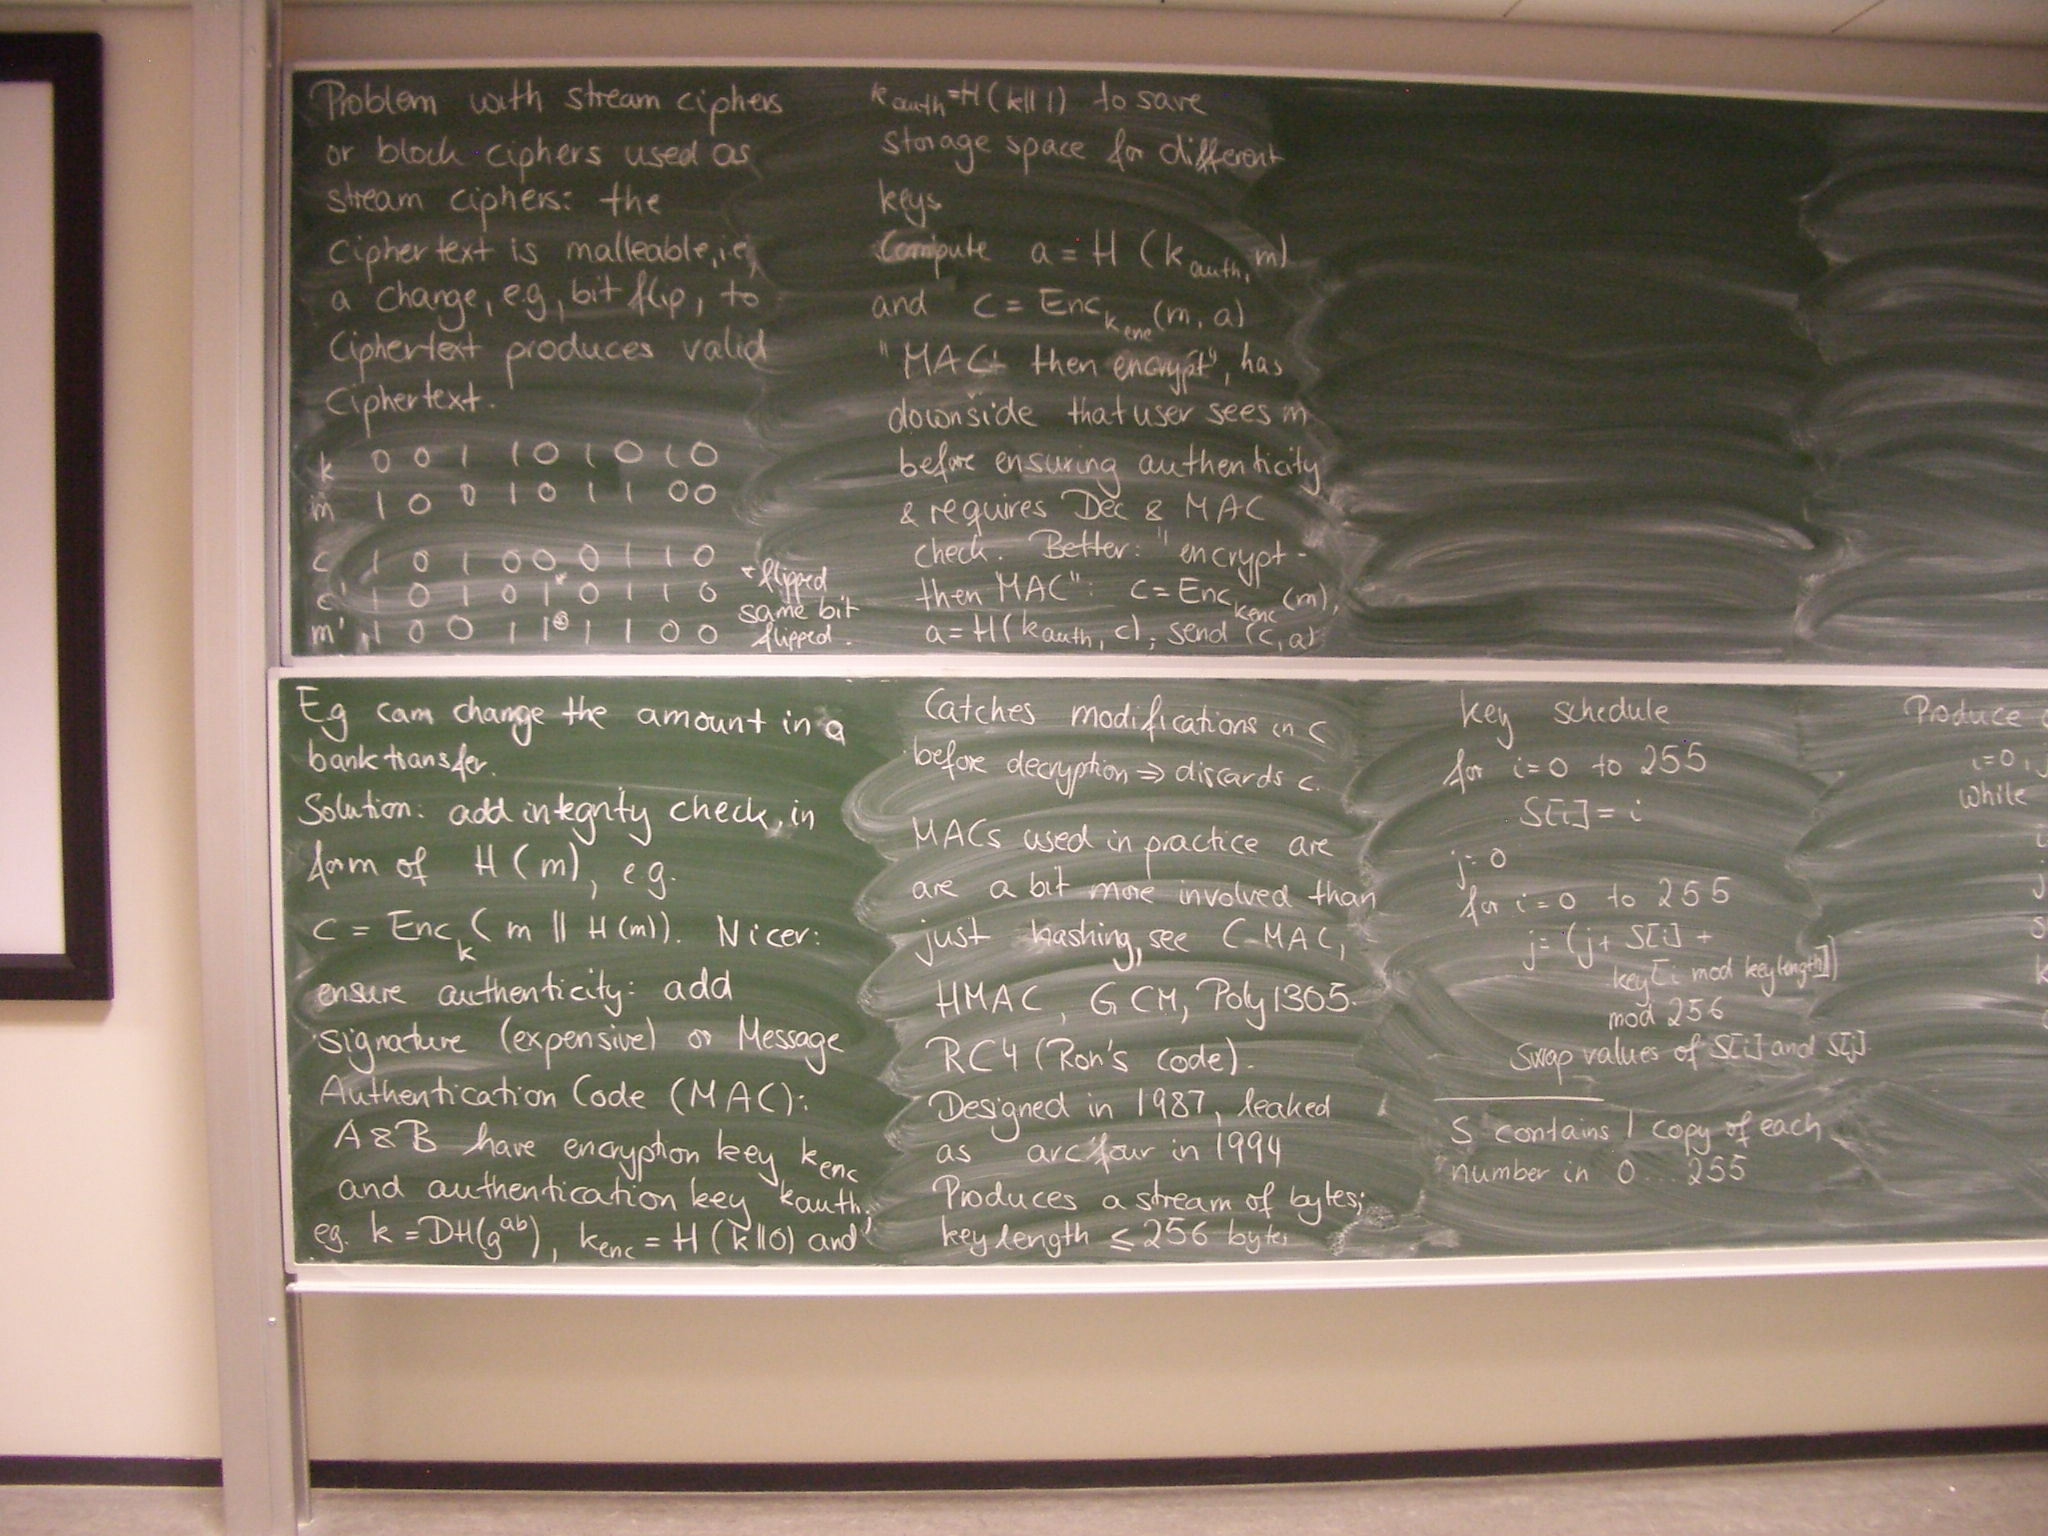 Problem with stream ciphers
or block ciphers used as
stream ciphers: the
ciphertext is malleable, i.e,
a change, e.g, bit flip, to
ciphertext produces valid
ciphertext.
k 0 0 1 1 0 1 0 1 0
m 1 0 0 1 0 1 1 0 0
c 1 0 1 0 0 0 1 1 0
c' 1 0 1 0 1 0 1 1 0 ← flipped
m' 1 0 0 1 1 1 1 0 0 same bit
flipped.
Eg can change the amount in a
bank transfer.
Solution: add integrity check, in
form of H(m), eg.
c = Enc_k(m || H(m)). Nicer:
ensure authenticity: add
signature (expensive) or Message
Authentication Code (MAC):
A & B have encryption key k_enc
and authentication key k_auth,
eg. k = DH(g^ab), k_enc = H(k||0) and
k_auth = H(k||1) to save
storage space for different
keys
Compute a = H(k_auth, m)
and c = Enc_k_enc(m, a)
"MAC then encrypt", has
downside that user sees m
before ensuring authenticity
& requires Dec & MAC
check. Better: "encrypt-
then MAC": c = Enc_k_enc(m),
a = H(k_auth, c), send (c, a)
Catches modifications in c
before decryption ⇒ discards c.
MACs used in practice are
are a bit more involved than
just hashing, see C-MAC,
HMAC, GCM, Poly1305.
RC4 (Ron's code).
Designed in 1987, leaked
as arcfour in 1994
Produces a stream of bytes;
key length ≤ 256 bytes
key schedule
for i=0 to 255
S[i] = i
j=0
for i=0 to 255
j= (j+ S[i] +
key[i mod keylength])
mod 256
Swap values of S[i] and S[j]
S contains 1 copy of each
number in 0...255
Produce
i=0, j
while